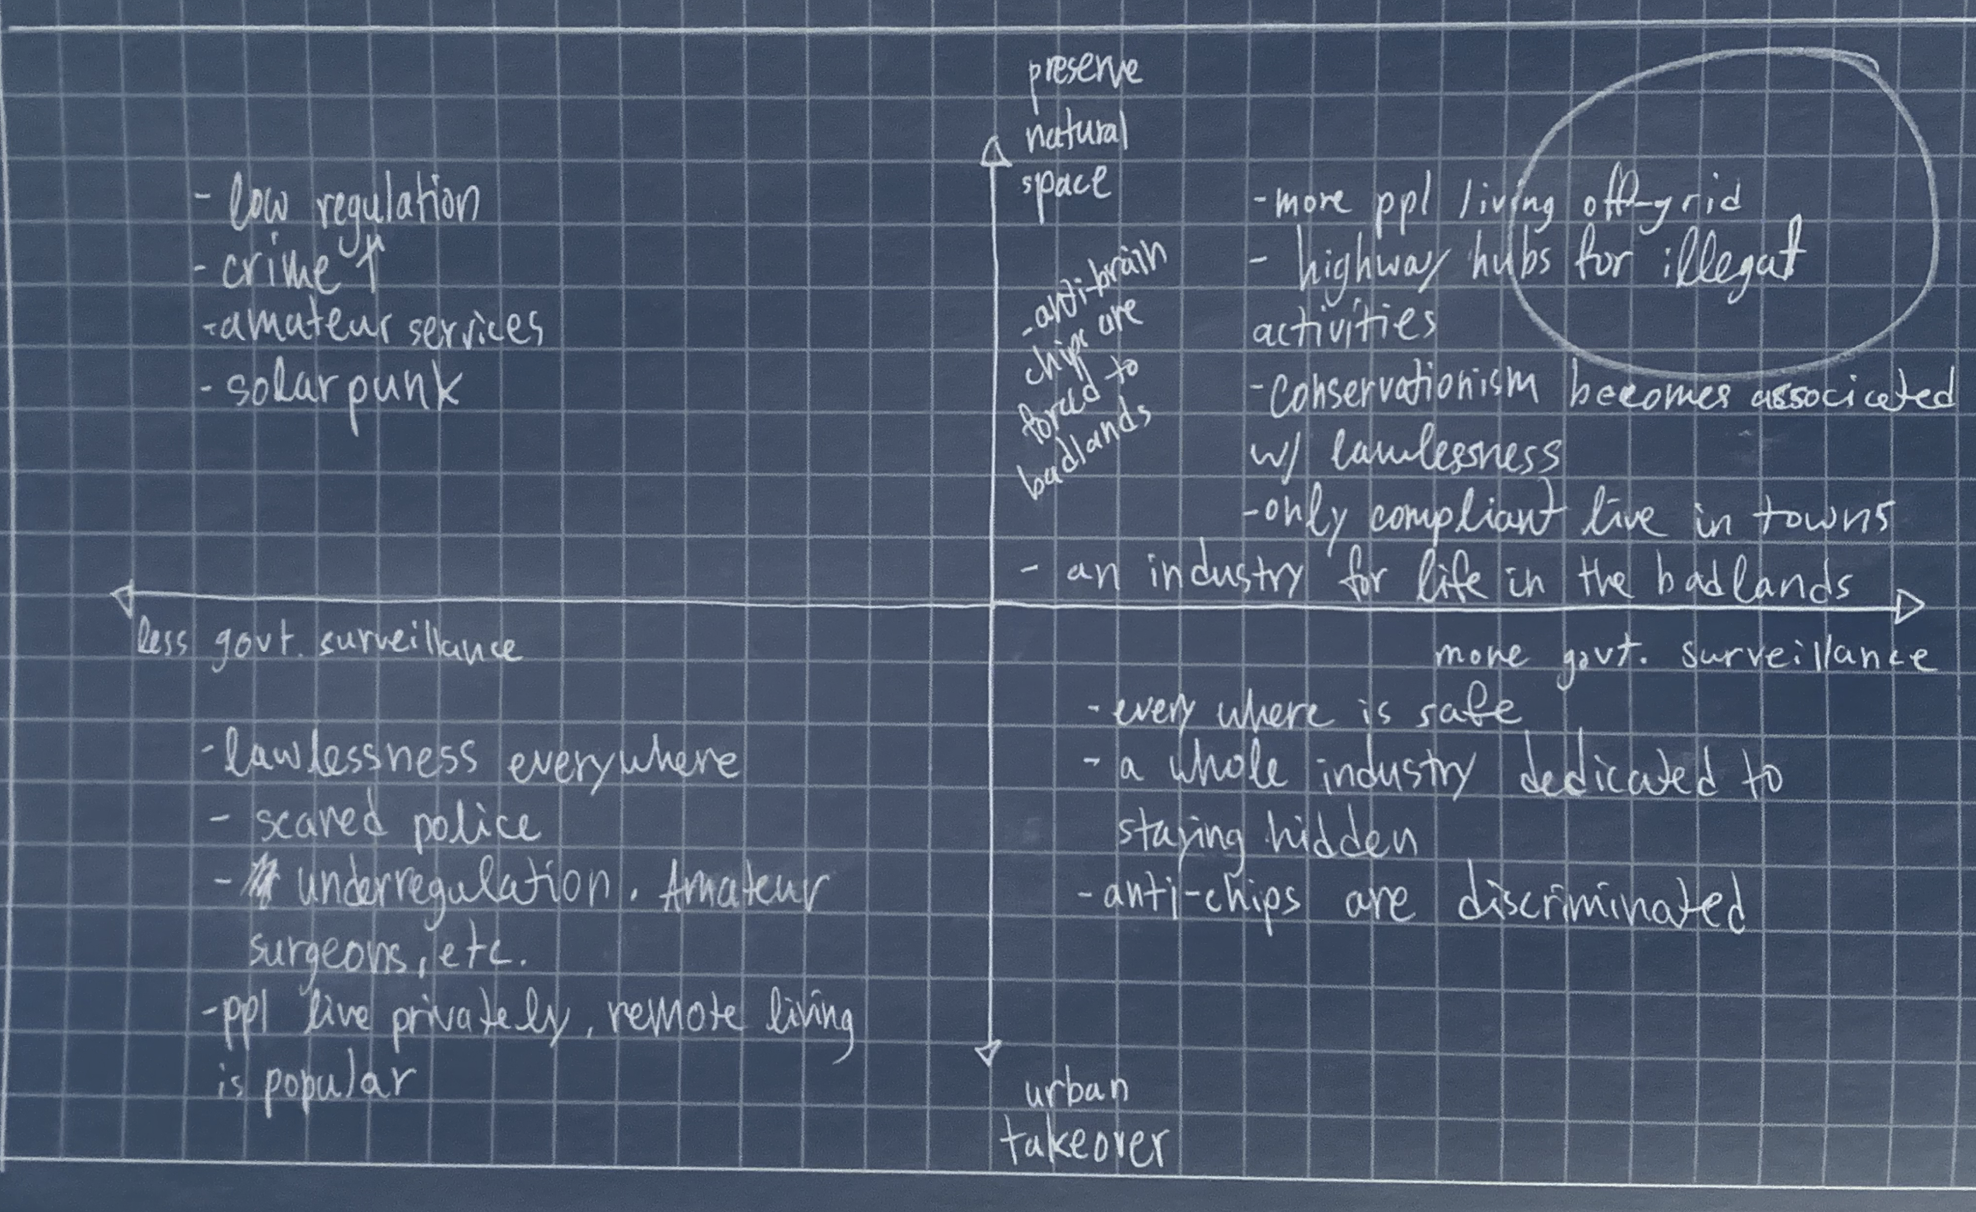 preserve
natural
space
- low regulation
- crime ↑
- amateur services
- solarpunk
- anti-brain
chips are
forced to
badlands
- more ppl living off-grid
- highway hubs for illegal
activities
- conservationism becomes associated
w/ lawlessness
- only compliant live in towns
- an industry for life in the badlands
less govt. surveillance
more govt. surveillance
- lawlessness everywhere
- scared police
- underregulation. Amateur
surgeons, etc.
- ppl live privately, remote living
is popular
- every where is safe
- a whole industry dedicated to
staying hidden
- anti-chips are discriminated
urban
takeover